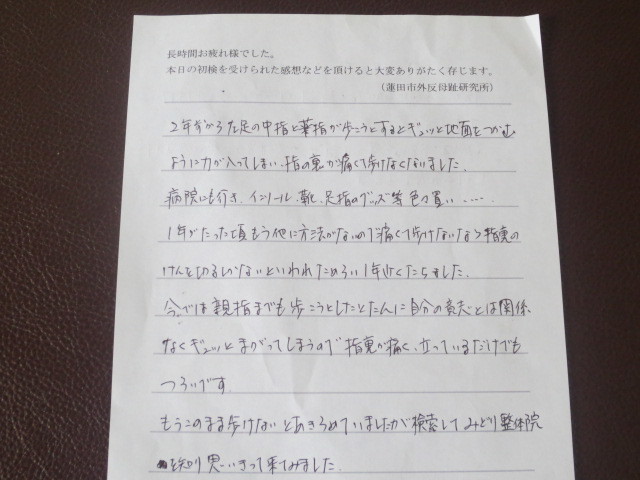 長時間お疲れ様でした。
本日の初検を受けられた感想などを頂けると大変ありがたく存じます。
（蓮田市外反母趾研究所）
2年半から左足の中指と薬指が歩こうとするとギュッと地面をつかむ
ように力が入ってしまい、指の裏が痛くて歩けなくなりました。
病院にも行き、インソール、靴、足指のグッズ等色々買い、……
1年がたった頃もう他に方法がないので痛くて歩けないなら指裏の
けんを切るしかないといわれたためらい1年近くたちました。
今では親指までも歩こうとしたとたんに自分の意志とは関係
なくギュッとまがってしまうので指裏が痛く、立っているだけでも
つらいです。
もうこのまま歩けないとあきらめていましたが検索してみどり整体院
を知り思いきって来てみました。